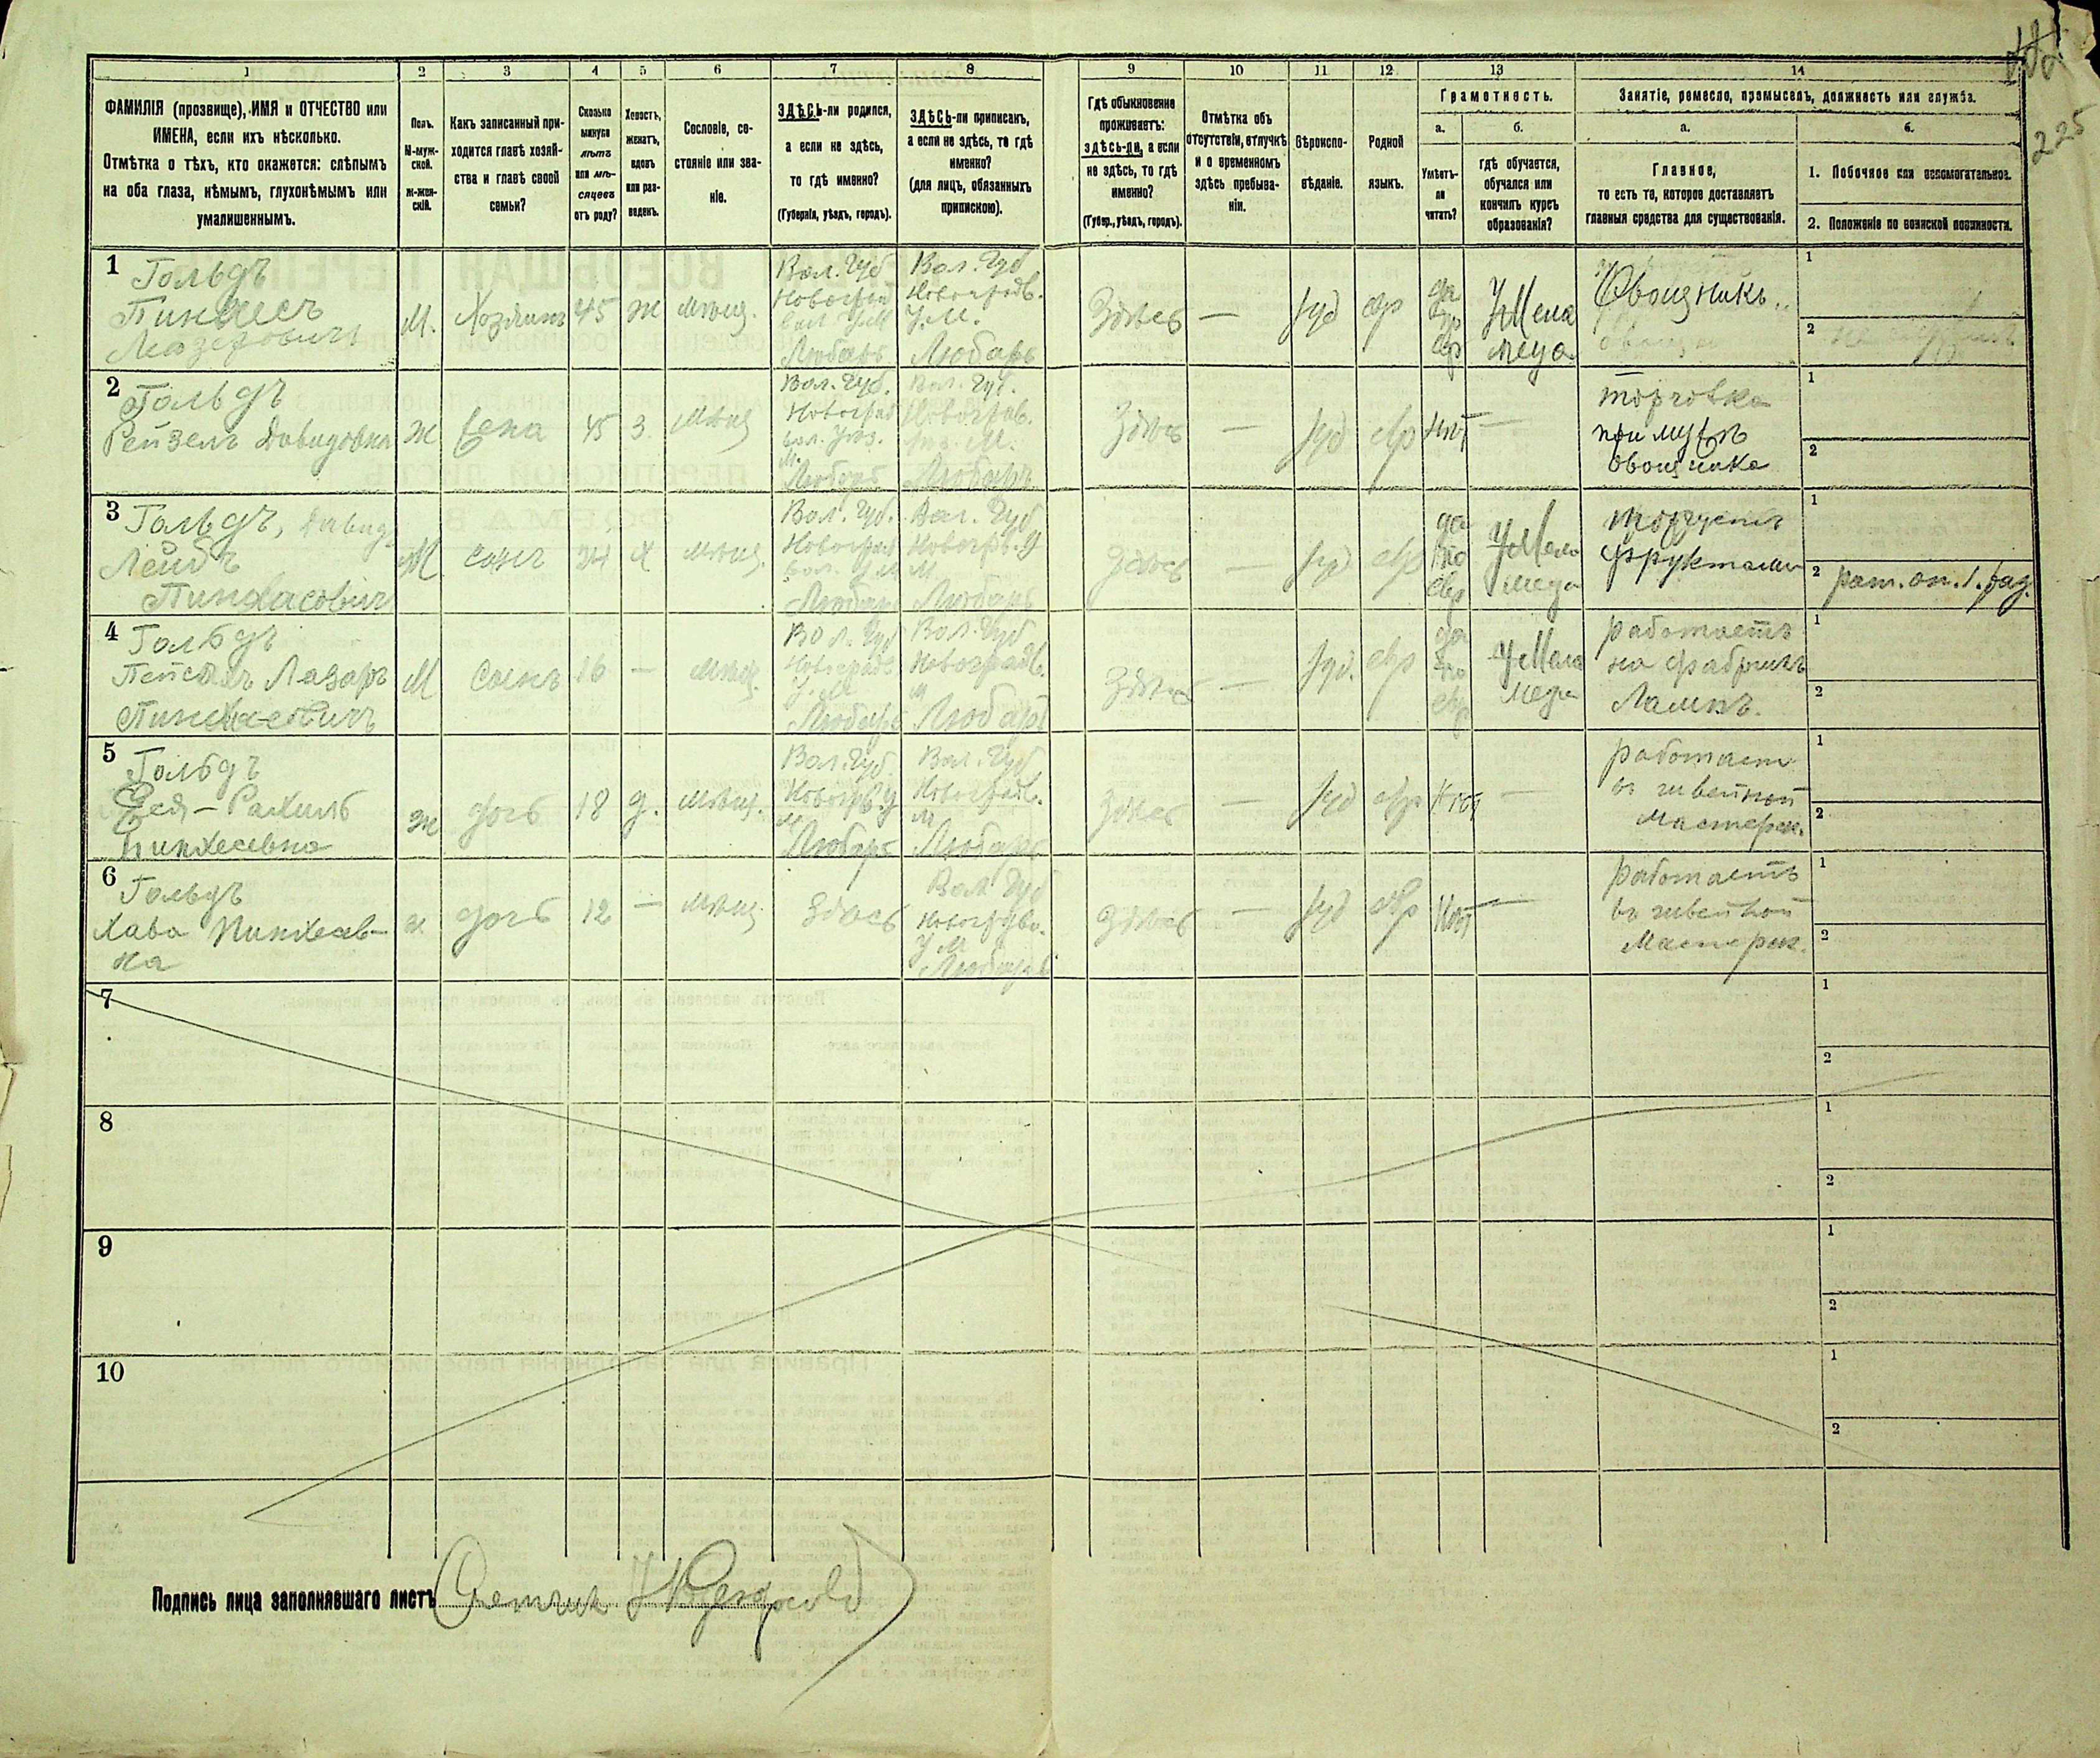 225
1 2 3 4 5 6 7 8 9 10 11 12 13 14
ФАМИЛІЯ (прозвище), ИМЯ и ОТЧЕСТВО или
ИМЕНА, если ихъ нѣсколько.
Отмѣтка о тѣхъ, кто окажется: слѣпымъ
на оба глаза, нѣмымъ, глухонѣмымъ или
умалишеннымъ.
Полъ.
М-муж-
ской.
ж-жен-
скій.
Какъ записанный при-
ходится главѣ хозяй-
ства и главѣ своей
семьи?
Сколько
минуло
лѣтъ
или мѣ-
сяцевъ
отъ роду?
Холостъ,
женатъ,
вдовъ
или раз-
веденъ.
Сословіе, со-
стояніе или зва-
ніе.
ЗДѢСЬ-ли родился,
а если не здѣсь,
то гдѣ именно?
(Губернія, уѣздъ, городъ).
ЗДѢСЬ-ли приписанъ,
а если не здѣсь, то гдѣ
именно?
(для лицъ, обязанныхъ
припискою).
Гдѣ обыкновенно
проживаетъ:
здѣсь-ли, а если
не здѣсь, то гдѣ
именно?
(Губер., уѣздъ, городъ).
Отмѣтка объ
отсутствіи, отлучкѣ
и о временномъ
здѣсь пребыва-
ніи.
Вѣроиспо-
вѣданіе.
Родной
языкъ.
Грамотность.
а.
Умѣетъ-
ли
читать?
б.
гдѣ обучается,
обучался или
кончилъ курсъ
образованія?
Занятіе, ремесло, промыселъ, должность или служба.
а.
Главное,
то есть то, которое доставляетъ
главныя средства для существованія.
б.
1. Побочное или вспомогательное.
2. Положеніе по воинской повинности.
1
Гольдъ
Пинхесъ
Лейзеровичъ
М.
Хозяинъ
45
ж
мѣщ.
Вол. Губ
Любаръ
Вол. Губ
Новоградв.
У. М.
Любаръ
Здѣсь
—
Iуд
евр
да
евр
У Мела
меда
Овощникъ
1
2
2
Гольдъ
Рейзель Давидовна
ж
жена
45
з.
мѣщ
Вол. Губ.
Новоград
вол. Уѣз.
М.
Любаръ
Вол. Губ.
Новоград.
М.
Любаръ
Здѣсь
—
Iуд
евр
нѣт
—
торговка
при мужѣ
овощника
1
2
3
Гольдъ, Давид
Лейбъ
Пинхасовичъ
М.
сынъ
24
х
мѣщ.
Вол. Губ.
Новоград
вол. У М
Любаръ
Вол. Губ
Новогр. У
М
Любаръ
Здѣсь
—
Iуд
евр
да
по
евр
У Мела
меда
торгуетъ
фруктами
1
2 рат. оп. 1. раз.
4
Гольдъ
Лазаръ
Пинхасовичъ
М
сынъ
16
—
мѣщ.
Вол. Губ
Новоградв
У. М.
Любаръ
Вол. Губ
Новоградв.
М
Любаръ
Здѣсь
—
Iуд.
евр
да
по
евр
У Мела
меда
работаетъ
на фабрикѣ
Лампъ.
1
2
5
Гольдъ
Рахиль
Пинхесевна
ж
дочь
18
д.
мѣщ.
Вол. Губ.
Новогрв У
М
Любаръ
Вол. Губ
Новоградв.
М
Любаръ
Здѣсь
—
Iуд
евр
нѣт
—
работает
въ швейной
мастерск.
1
2
6
Гольдъ
Хава Пинхесев-
на
ж
дочь
12
—
мѣщ.
Здѣсь
Вол. Губ
Новоградво.
У М
Любаръ
Здѣсь
—
Iуд
евр
нѣт
—
работаетъ
въ швейной
мастерск.
1
2
7
1
2
8
1
2
9
1
2
10
1
2
Подпись лица заполнявшаго листъ Счетчик